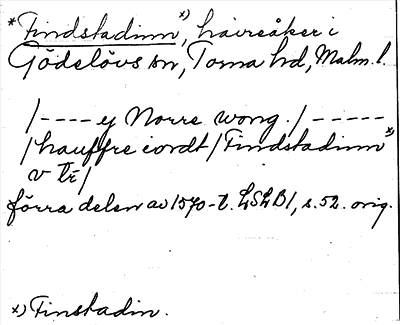 *Findstadinn x), havreåker i
Gödelövs sn, Torna hd, Malm. l.
/---- ey Norre wong. /-----
/hauffre iordt/Findstadinn x)
v tr/
förra delen av 1570-t. LSLB1, s. 52. orig.
x) Finstadin.